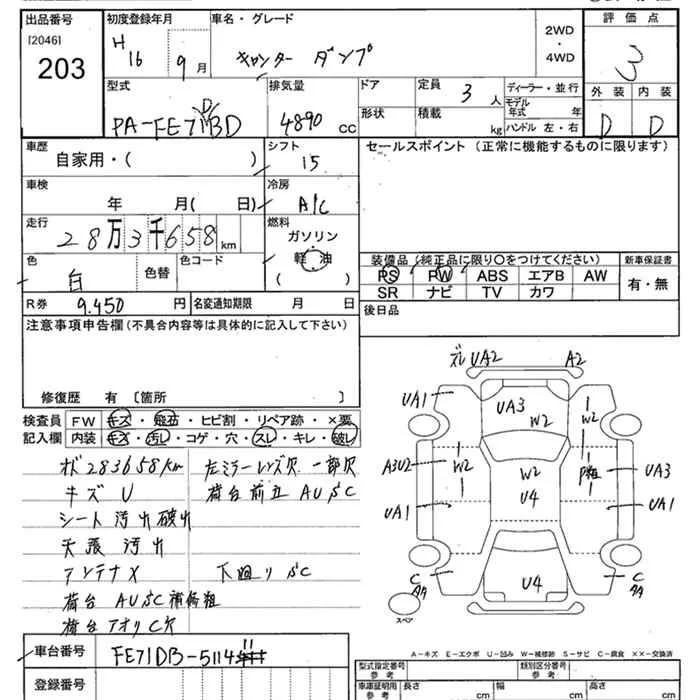 出品番号 初度登録年月 車名・グレード 2WD・4WD 評価点
[2046]
203
H16 9月 キャンター ダンプ 3
型式 排気量 ドア 定員 3人 ディーラー・並行 外装 内装
PA-FE71DBD 4890cc 形状 積載 kg モデル年式 年 D D
ハンドル 左・右
車歴 シフト セールスポイント (正常に機能するものに限ります)
自家用・( ) 15
車検 冷房
年 月( 日) A/C
走行 燃料
28万3千658km ガソリン
軽油 装備品(純正品に限り〇をつけてください) 新車保証書
色 色替 色コード PS PW ABS エアB AW 有・無
白 SR ナビ TV カワ
R券 9.450円 名変通知期限 月 日 後日品
注意事項申告欄(不具合内容等は具体的に記入して下さい)
修復歴 有 〔箇所 〕
検査員記入欄 FW キズ・飛石・ヒビ割・リペア跡・×要
内装 キズ・汚し・コゲ・穴・スレ・キレ・破レ
メーター 283658km 左ミラーレンズ欠 一部欠
キズU 荷台前立AUSC
シート汚れ破れ
天張汚れ
アンテナX 下廻りSC
荷台AUSC補修粗
荷台アオリC欠
ズレ UA2 A2
UA1 UA3 W2 W2
A3U2 W2 W2 U4 UA3
UA1 UA1
C U4 C
スペア
A-キズ E-エクボ U-凹み W-補修跡 S-サビ C-腐食 ××-交換済
車台番号 FE71DB-5114
登録番号
型式指定番号 参考 類別区分番号 参考
車庫証明用 参考 長さ cm 幅 cm 高さ cm